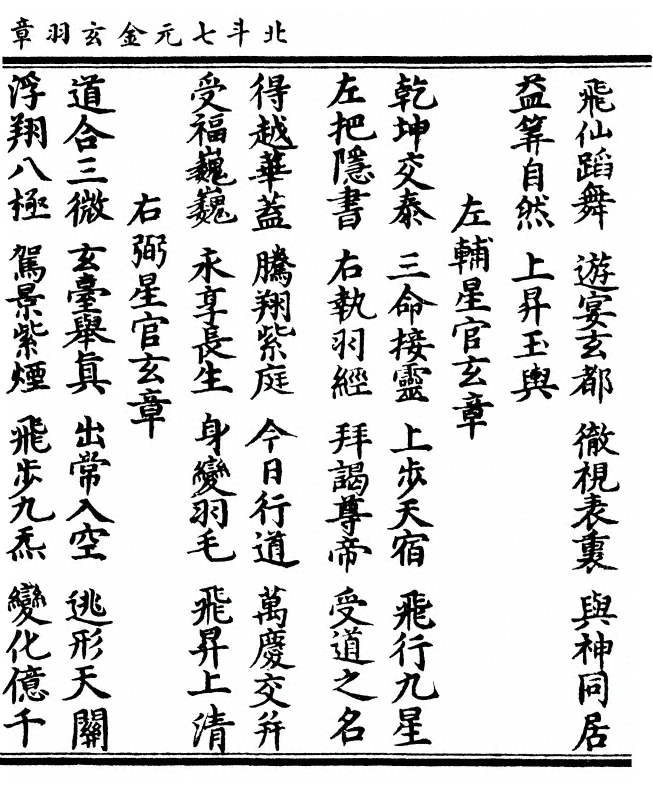 北斗七元金玄羽章
飛仙蹈舞 遊宴玄都 徹視表裏 與神同居
益筭自然 上昇玉輿
左輔星官玄章
乾坤交泰 三命接靈 上步天宿 飛行九星
左把隱書 右執羽經 拜謁尊帝 受道之名
得越華蓋 騰翔紫庭 今日行道 萬慶交并
受福巍巍 永享長生 身變羽毛 飛昇上清
右弼星官玄章
道合三微 玄臺舉真 出常入空 逃形天關
浮翔八極 駕景紫煙 飛步九炁 變化億千